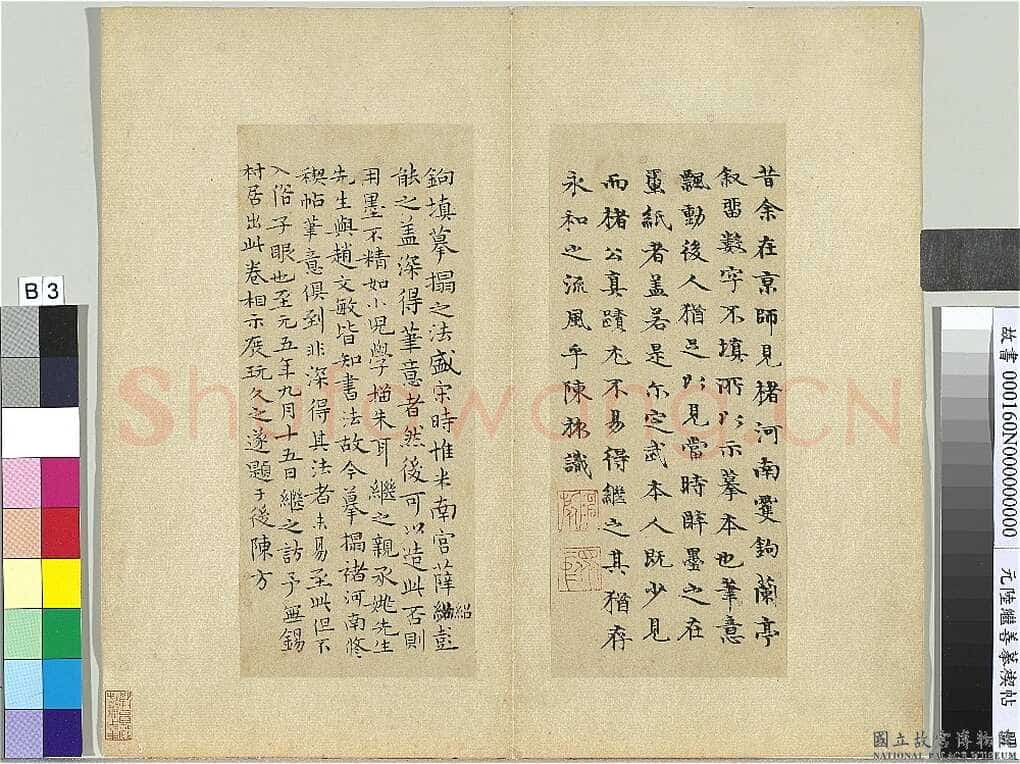 昔余在京師見楮河南雙鉤蘭亭
叙留數字不填所以示摹本也筆意
飄動後人猶足以見當時醉墨之在
蠒紙者盖若是尔定武本人既少見
而楮公真蹟尤不易得繼之其猶存
永和之流風乎陳旅識
鉤填摹搨之法盛宋時惟米南宮薛紹彭
能之盖深得筆意者然後可以造此否則
用墨不精如小兒學描朱耳繼之親承姚先生
先生與趙文敏皆知書法故今摹搨褚河南修
禊帖筆意俱到非深得其法者未易至此但不
入俗子眼也至元五年九月十五日繼之訪予無錫
村居出此卷相示展玩久之遂題于後陳方
B 3
Shufawang.CN
故書 000160N000000000
元陸繼善摹禊帖
國立故宮博物院
NATIONAL PALACE MUSEUM